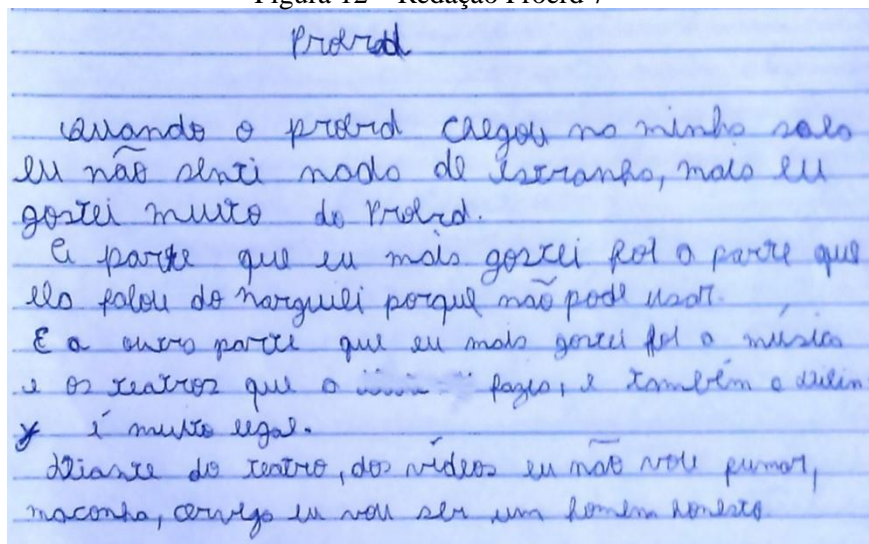 Figura 12 – Redação Proerd 7
Proerd
Quando o proerd chegou na minha sala
eu não senti nada de estranho, mais eu
gostei muito do Proerd.
A parte que eu mais gostei foi a parte que
ela falou do narguili porque não pode usar.
E a outra parte que eu mais gostei foi a música
e os teatros que a fazia, e também o
é muito legal.
Diante do teatro, dos vídeos eu não vou fumar,
maconha, cerveja eu vou ser um homem honesto